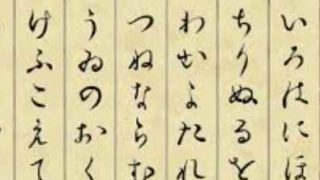 いろはにほ
ちりぬるを
わかよたれ
つねならむ
うゐのおく
けふこえて